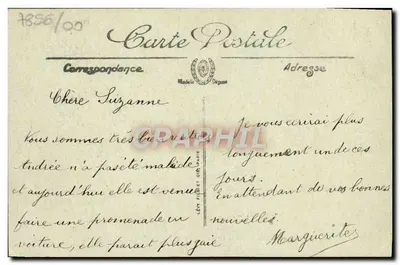 7856/00
Carte Postale
Correspondance
Adresse
Modèle Déposé
Chère Suzanne
Nous sommes très bien
Andrée n'a pas été malade
et aujourd'hui elle est venue
faire une promenade en
voiture, elle parait plus gaie
Je vous écrirai plus
longuement un de ces
jours.
En attendant de vos bonnes
nouvelles.
Marguerite
CARTAPHIL